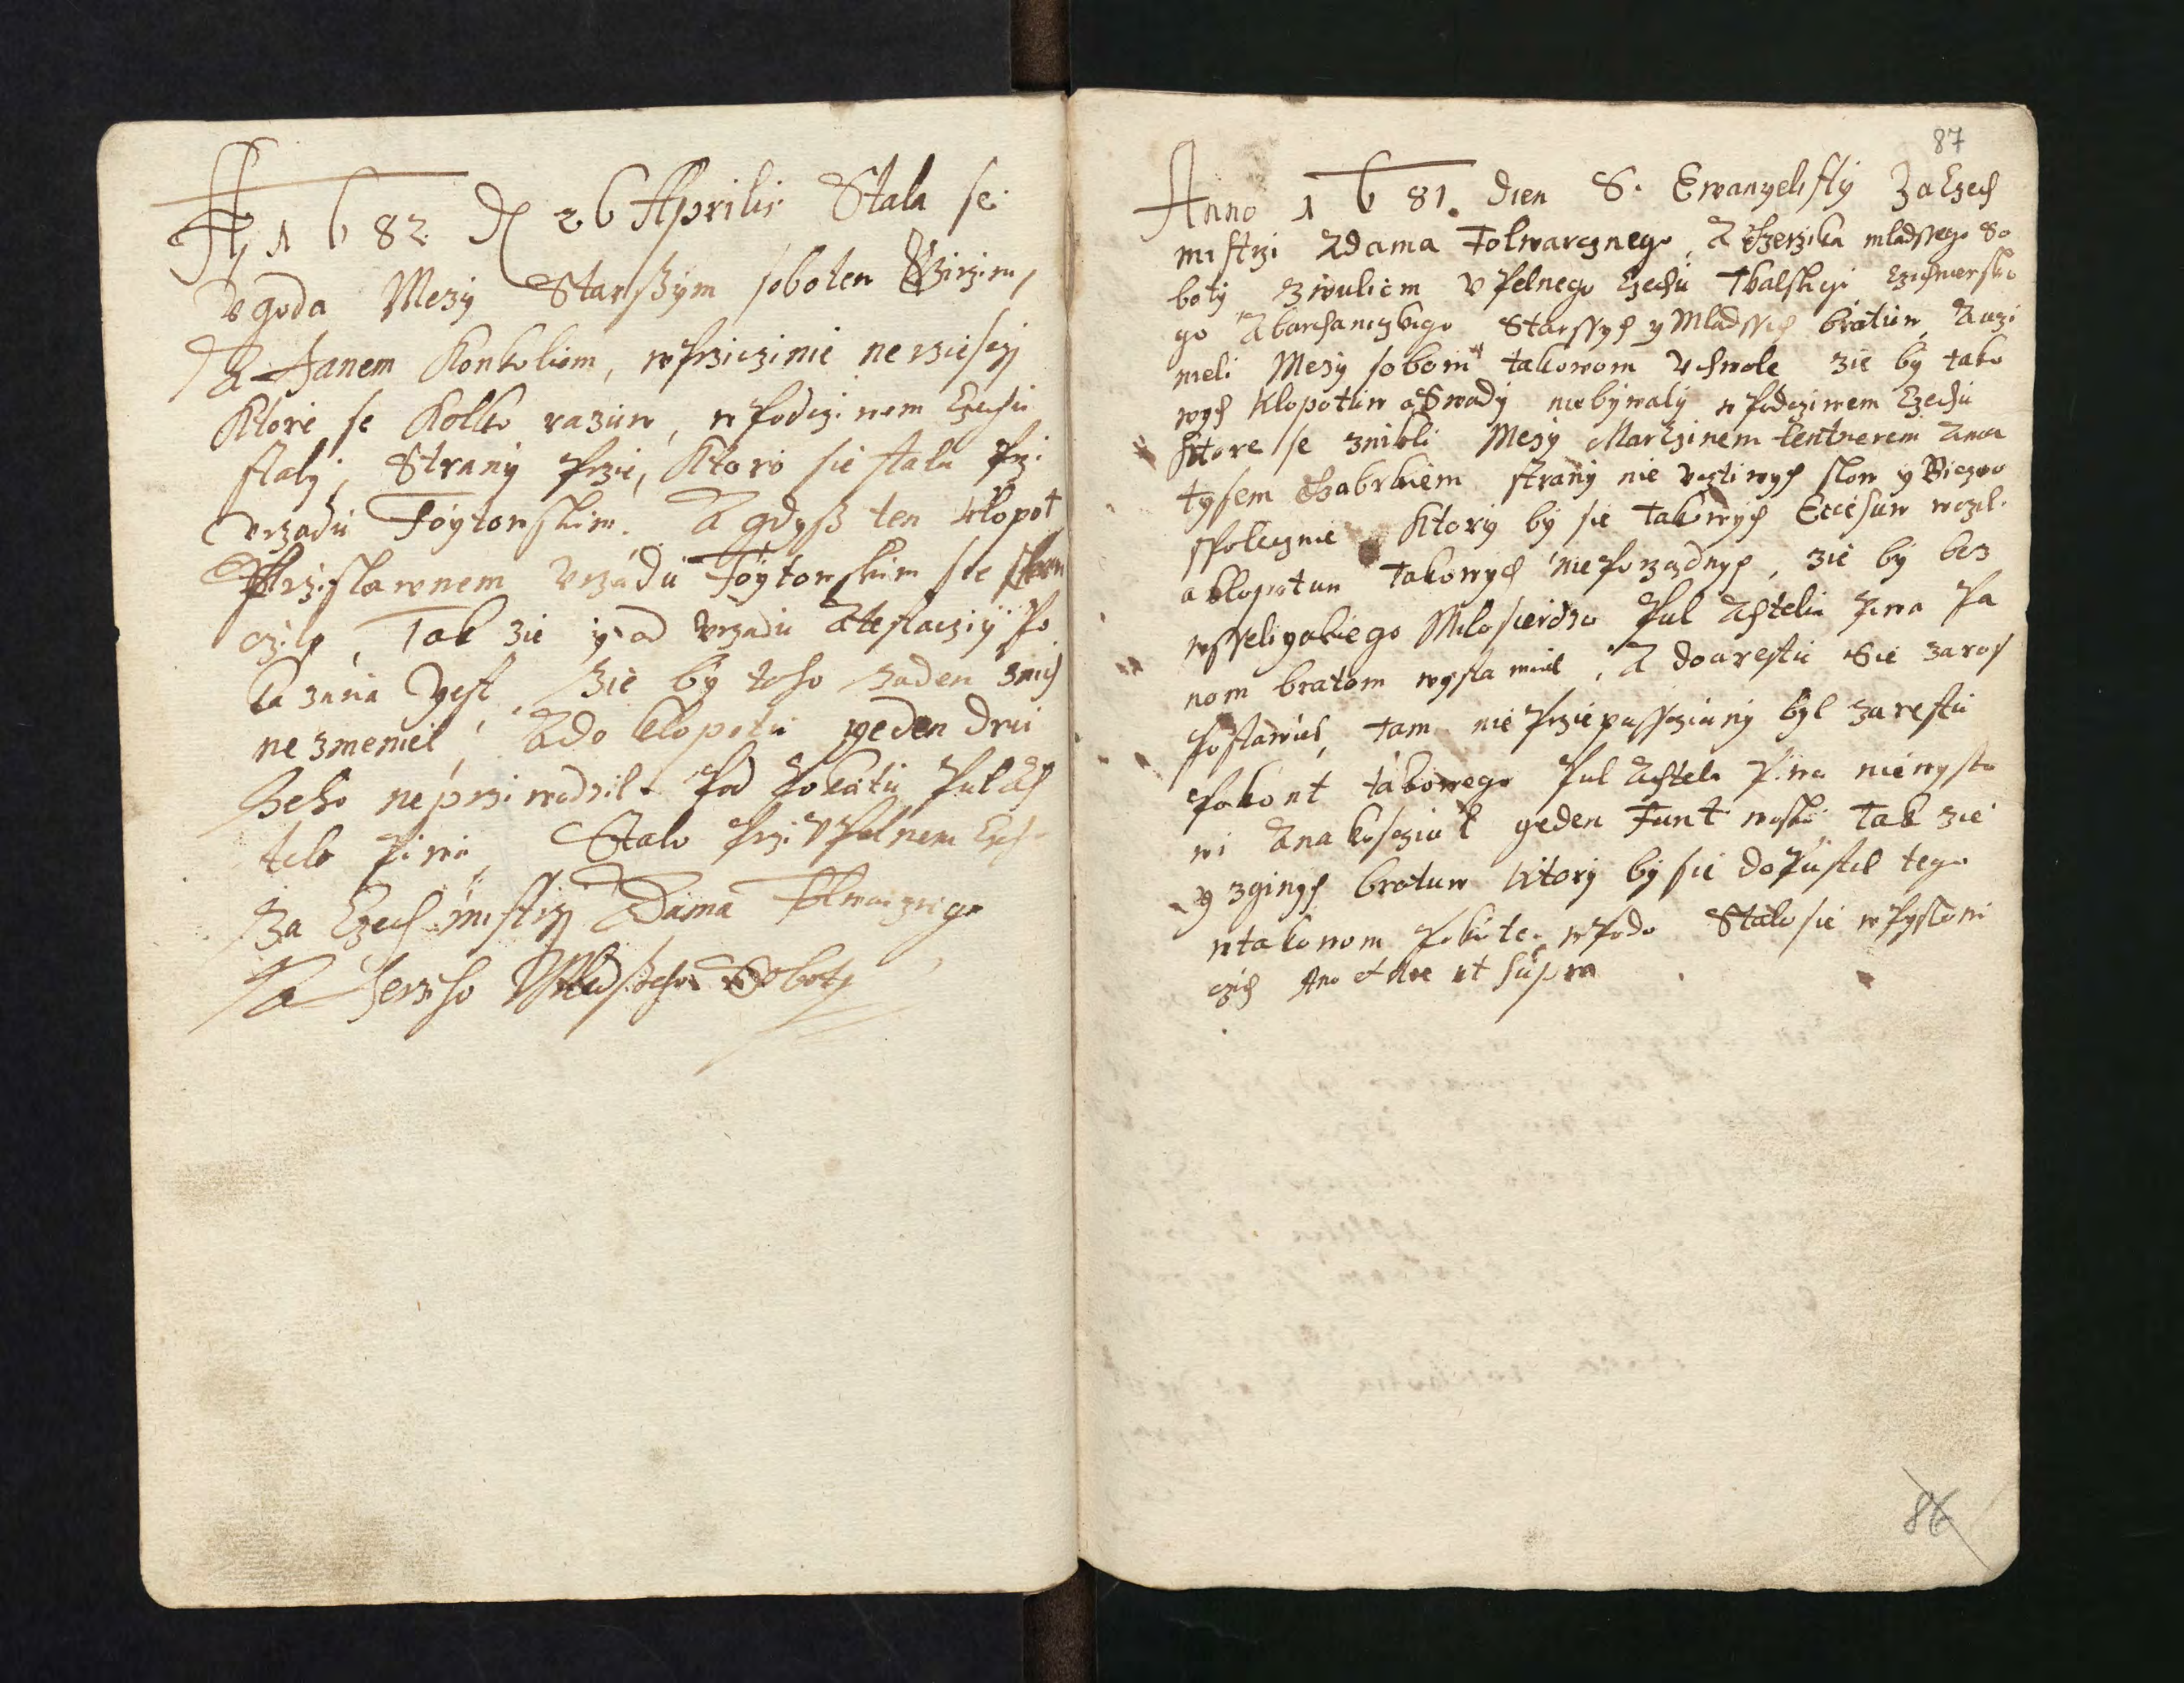 A 1682 d 26 Aprilis Stala se
vgoda Mezy Starßym soboten
A Janem Konkoliem, w prziczinie nerziesczy
Ktore se Kolko razuw, w podczi wem Czechu
staly, Strany Przie, Ktoro sie stala Przi
vrzadu Foytowskim. A gdyß ten klopot
Przislawnem vrzadu Foytowskim sie
czilo, Tak zie y od vrzadu Atestacziy Po
ka zana yest, zie by toho zaden znich
ne zmeniel, A do klopotu yeden dru
heho neprziwodzil. Pod Pokutu Pul Ach
tele Piwa, Stalo Przi VPelnem Czech
Za Czech mistrzy Adama Folwarcznego
A Jerzho Mladßeho Soboty
87
Anno 1681. dien S. Ewangelisty Za Czech
mistrzi Adama Folwarcznego, A Jerzika mladssego So
boty Zwuliem VPelnego Czechu Tkalskego Czichmersko
go A barchanczkego Starssych y Mladssich bratuw, Auczi
nieli Mezy sobom takowom Vchwole zie by tako
wych klopotuw a Swady niebywaly w Podcziwem Czechu
Ktore se znikli Mezy Marczinem Lentnerem Ama
tysem Chabrkiem strany nie vcztiwych slow y
spolecznie Ktory by sie takowych Excesuw wczil
a klopotuw takowych nie Porzadnych, zie by bez
wsseliyakiego Milosierdzia Pul Achtelu Piwa Pa
nom bratom wystawiel, A do arestu Sie zaraz
Postawiel, tam nie Przie pussczieny byl z arestu
Pokont takowego Pul Achtele Piwa niewysta
wi A na koscziol yeden Funt wosku, Tak zie
y zginych bratuw ktory by sie dopustil tego
w takowom Pokute wPodo Stalo sie w Pysko wi
czich Ano et die ut supra
86